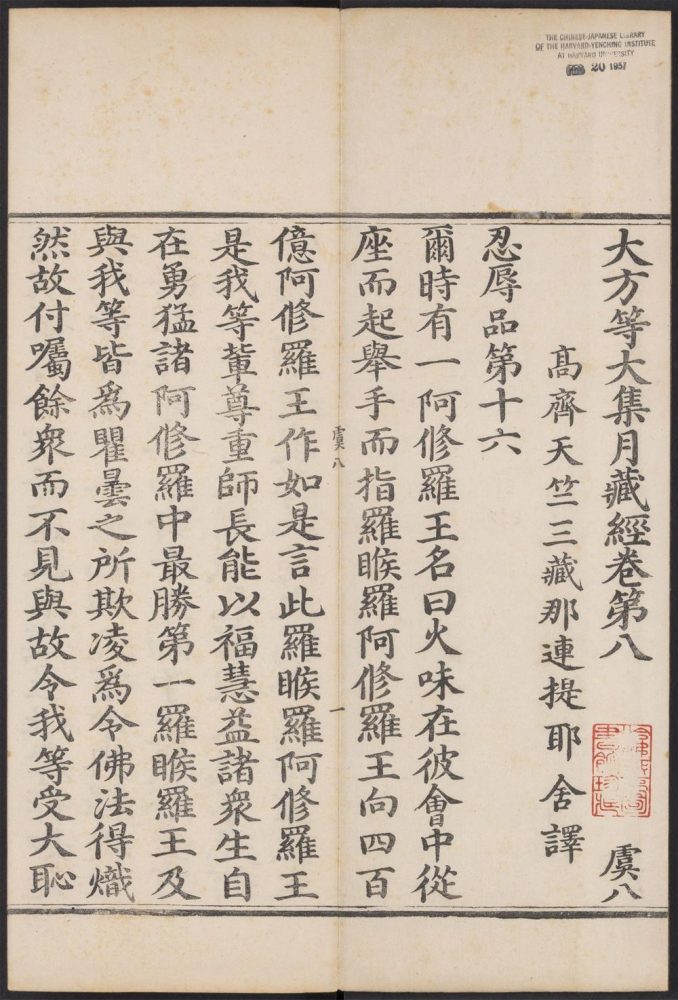 THE CHINESE-JAPANESE LIBRARY
OF THE HARVARD-YENCHING INSTITUTE
AT HARVARD UNIVERSITY
20 1957
大方等大集月藏經卷第八
虞八
高齊天竺三藏那連提耶舍譯
忍辱品第十六
爾時有一阿修羅王名曰火味在彼會中從
座而起舉手而指羅睺羅阿修羅王向四百
虞八
一
億阿修羅王作如是言此羅睺羅阿修羅王
是我等輩尊重師長能以福慧益諸衆生自
在勇猛諸阿修羅中最勝第一羅睺羅王及
與我等皆爲瞿曇之所欺凌爲令佛法得熾
然故付囑餘衆而不見與故令我等受大恥